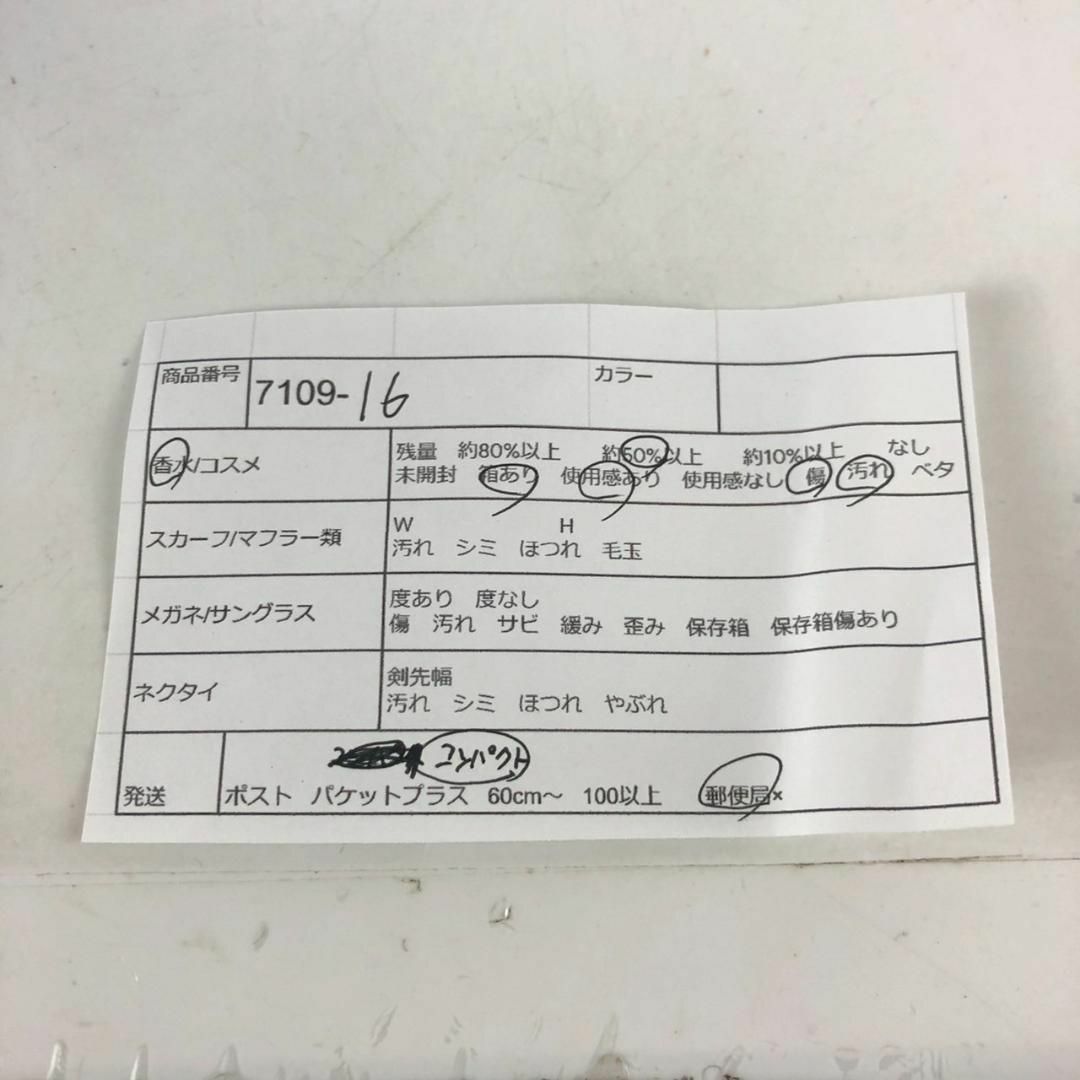 商品番号 7109-16 カラー
香水/コスメ 残量 約80%以上 約50%以上 約10%以上 なし
未開封 箱あり 使用感あり 使用感なし 傷 汚れ ベタ
スカーフ/マフラー類 W H
汚れ シミ ほつれ 毛玉
メガネ/サングラス 度あり 度なし
傷 汚れ サビ 緩み 歪み 保存箱 保存箱傷あり
ネクタイ 剣先幅
汚れ シミ ほつれ やぶれ
コンパクト
発送 ポスト パケットプラス 60cm～ 100以上 郵便局×